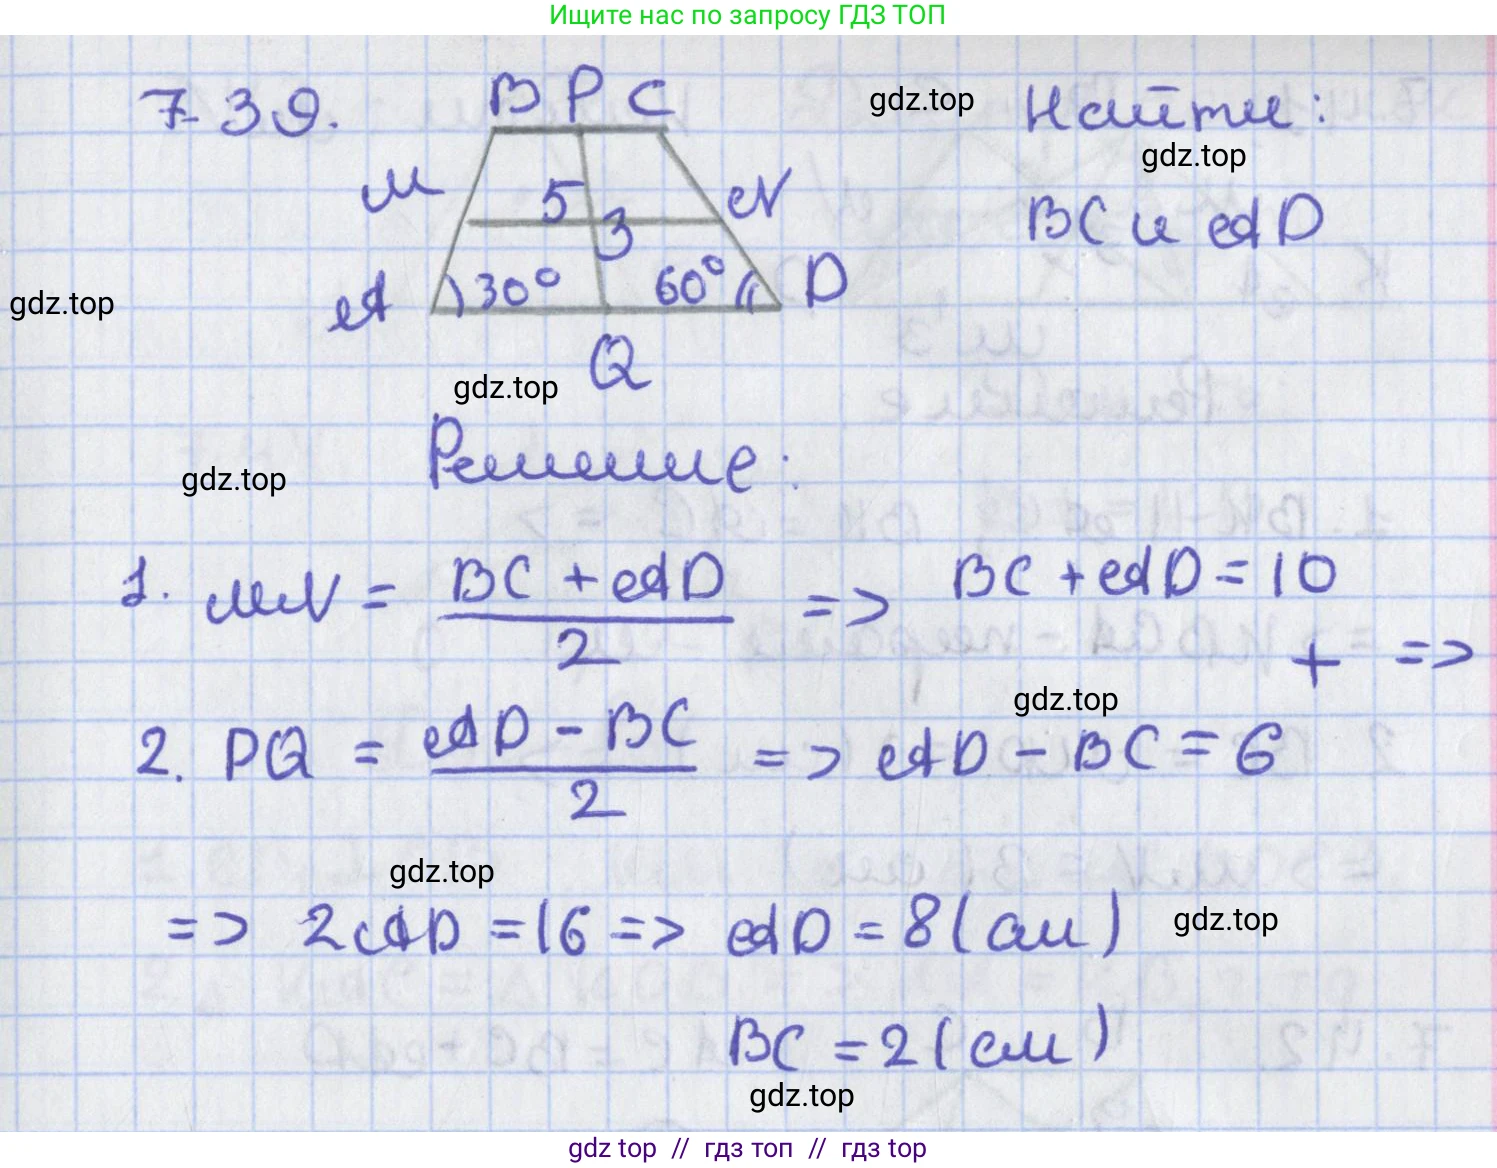 Ищите нас по запросу ГДЗ ТОП
7.39.
B P C
gdz.top
Найти:
gdz.top
M
5
N
3
BC и AD
gdz.top
A
30°
60°
D
Q
gdz.top
gdz.top
Решение:
1. MN = BC + AD / 2 => BC + AD = 10
+ =>
gdz.top
2. PQ = AD - BC / 2 => AD - BC = 6
gdz.top
=> 2AD = 16 => AD = 8 (см)
gdz.top
BC = 2 (см)
gdz.top
gdz top // гдз топ // гдз top